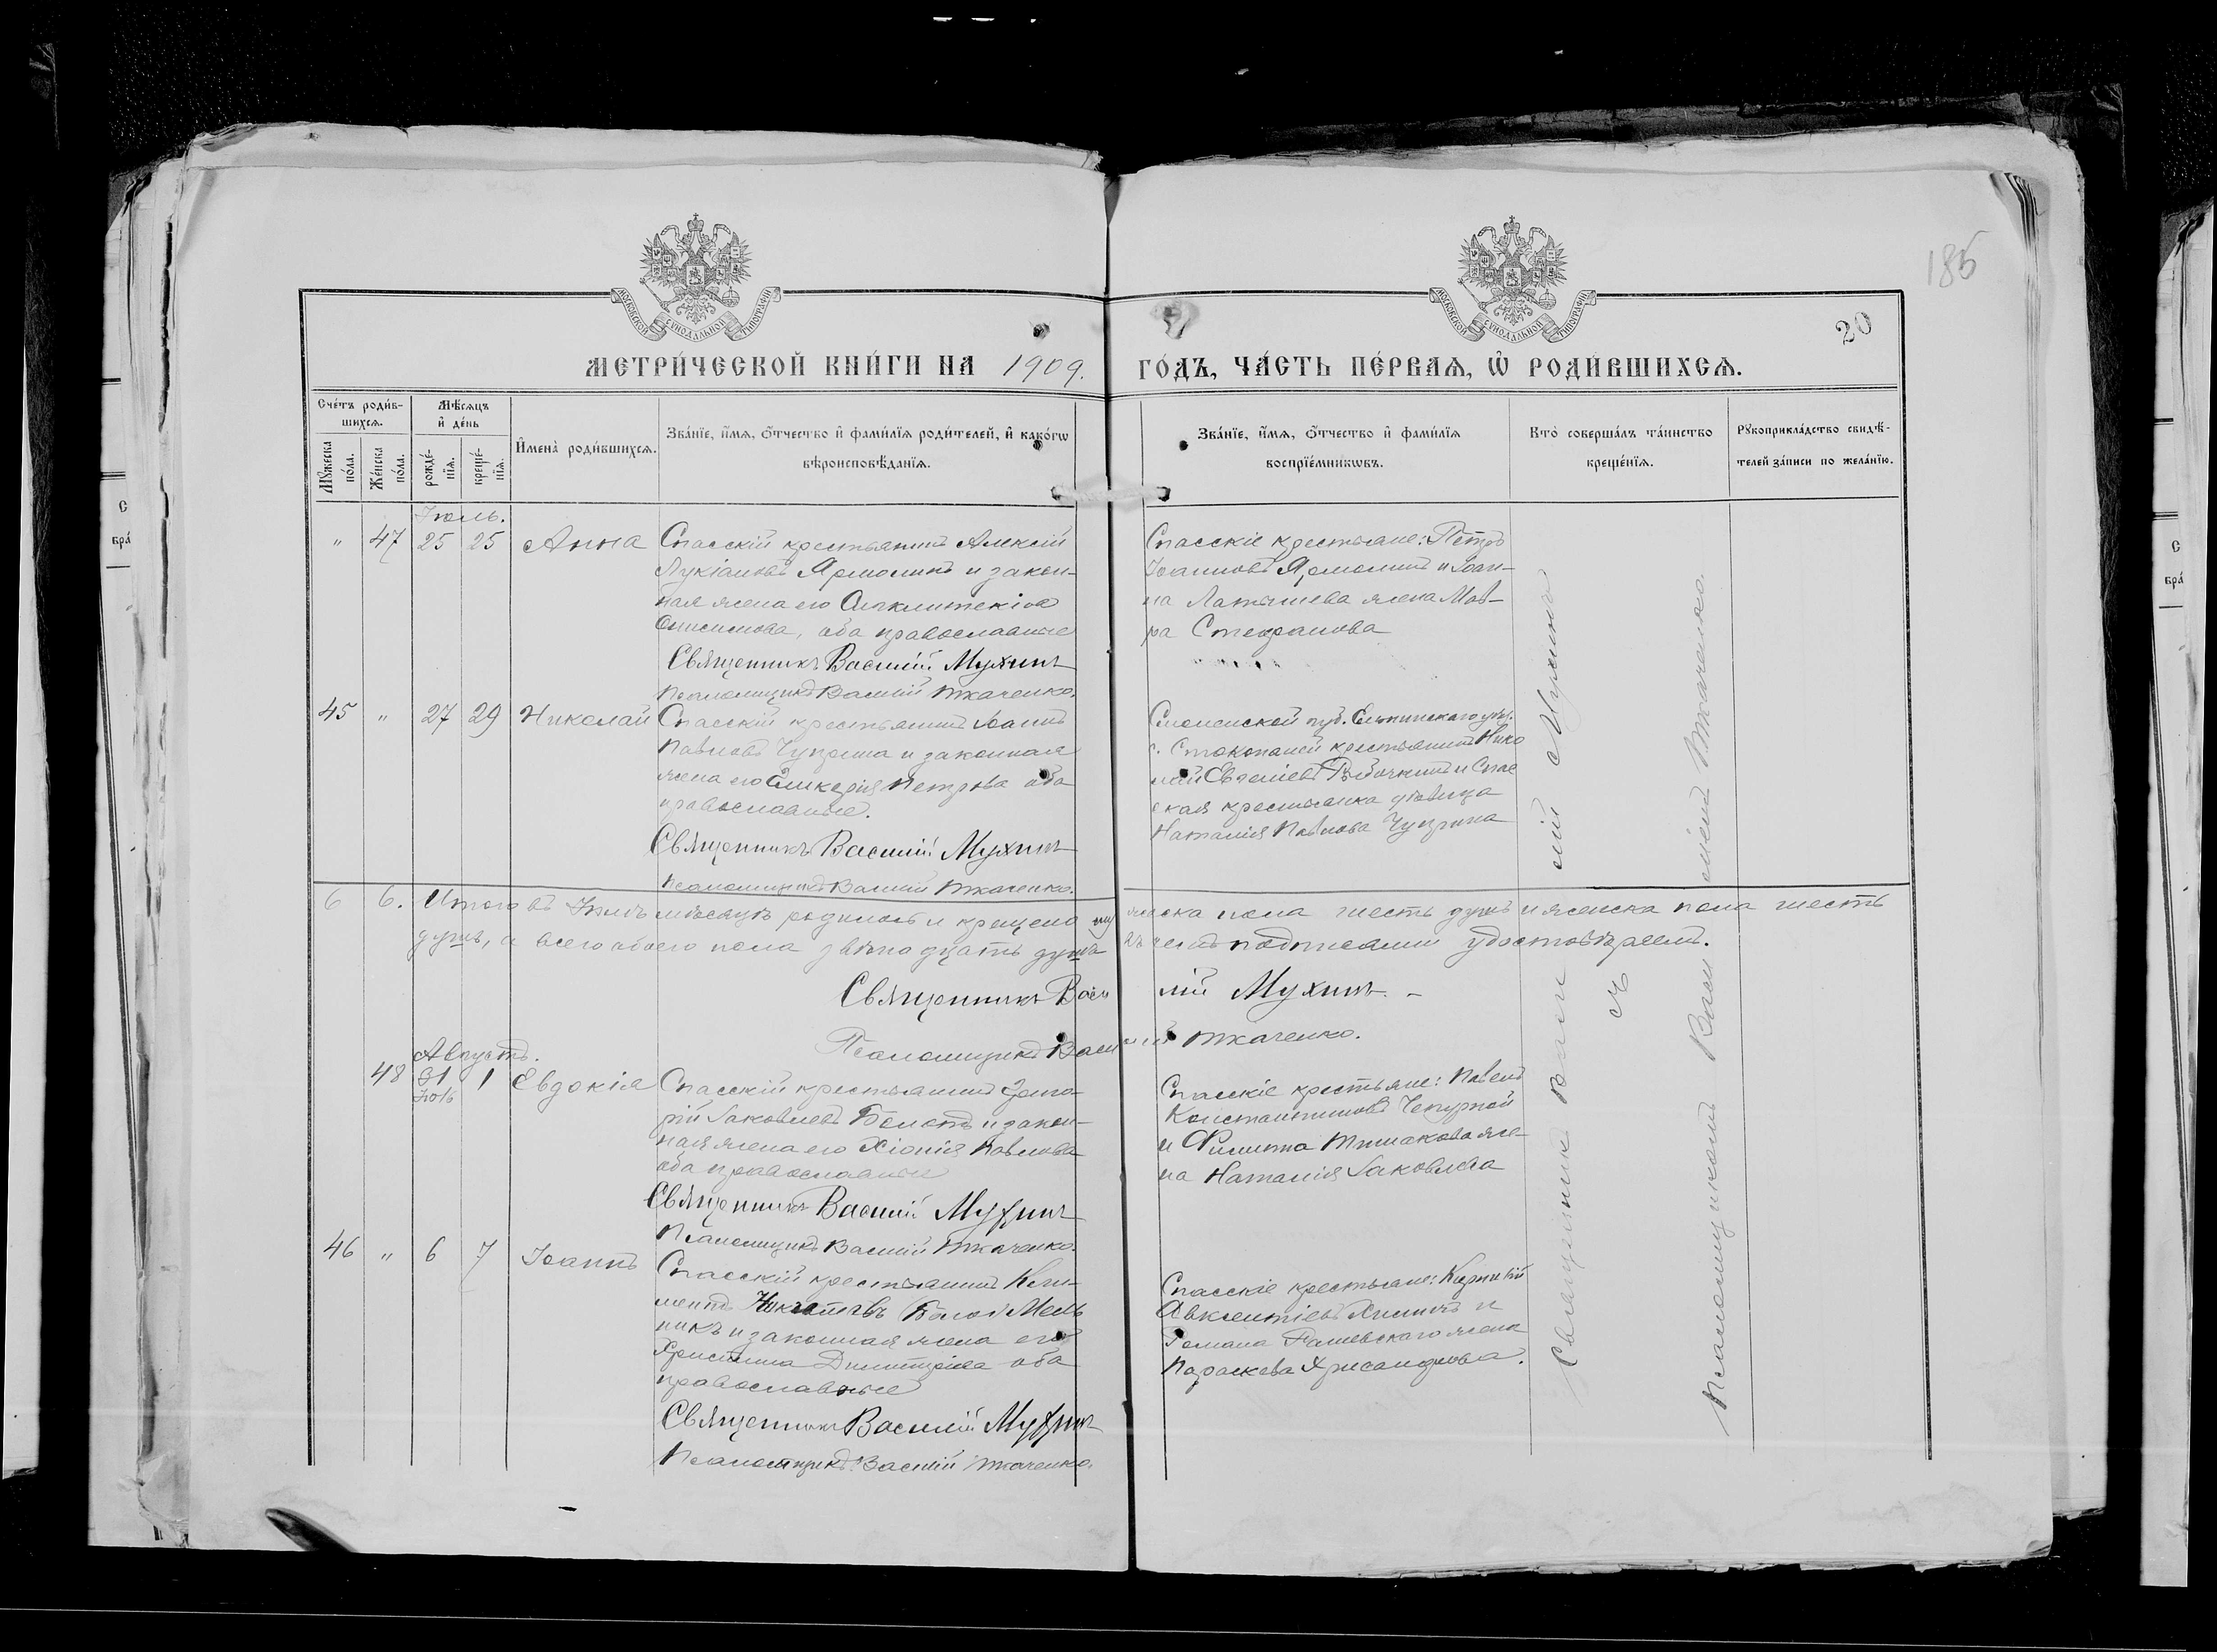 185
20
МОСКОВСКОЙ СѴНОДАЛЬНОЙ ТИПОГРАФІИ
МОСКОВСКОЙ СѴНОДАЛЬНОЙ ТИПОГРАФІИ
МЕТРИ́ЧЕСКОЙ КНИ́ГИ НА 1909. ГО́ДЪ, ЧА́СТЬ ПЕ́РВАѦ, Ѡ҆ РОДИ́ВШИХСѦ.
Сче́тъ роди́в-
шихсѧ.
Мꙋ́жеска
по́ла.
Же́нска
по́ла.
Мѣ́сѧцъ
и҆ де́нь
рожде́-
нїѧ.
креще́-
нїѧ.
И҆мена̀ роди́вшихсѧ.
Зва́нїе, и҆́мѧ, ѻ҆́тчество и҆ фами́лїѧ роди́телей, и҆ како́гѡ
вѣроисповѣ́данїѧ.
Зва́нїе, и҆́мѧ, ѻ҆́тчество и҆ фами́лїѧ
воспрїе́мникѡвъ.
Кто̀ соверша́лъ та́инство
креще́нїѧ.
Рꙋкоприкла́дство свидѣ́-
телей за́писи по жела́нїю.
Іюль.
" 47 25 25 Анна
Спасскій крестьянинъ Алексій
Лукіановъ Ярмолинъ и закон-
ная жена его
Онисимова, оба православные
Священникъ Василій Мухинъ
Псаломщикъ Василій Ткаченко.
Спасскіе крестьяне: Петръ
Іоанновъ Ярмолинъ и Іоан-
на Латышева жена Мав-
ра Стефанова
45 " 27 29 Николай
Спасскій крестьянинъ Іоаннъ
Павловъ Чуприна и законная
жена его Гликерія Петрова оба
православные.
Священникъ Василій Мухинъ
Псаломщикъ Василій Ткаченко.
Смоленской губ. Ельнинскаго уѣз.
крестьянинъ Нико
лай и Спас
ская крестьянка дѣвица
Наталія Павлова Чуприна
6 6. Итого въ Іюлѣ мѣсяцѣ родилось и крещено му жеска пола шесть душъ и женска пола шесть
душъ, а всего обоего пола двѣнадцать душъ въ чемъ подписями удостовѣряемъ.
Священникъ Васи лій Мухинъ. -
Псаломщикъ Васи лій Ткаченко.
Августъ.
48 31 1 Евдокія
Іюль
Спасскій крестьянинъ Григо-
рій Іаковлевъ и закон-
ная жена его Хіонія Павлова
оба православные
Священникъ Василій Мухинъ
Псаломщикъ Василій Ткаченко.
Спасскіе крестьяне: Павелъ
Константиновъ Чепурной
и Филиппа же-
на Наталія Іаковлева
46 " 6 7 Іоаннъ
Спасскій крестьянинъ Кли-
ментъ Мель
никъ и законная жена его
Христина Димитріева оба
православные
Священникъ Василій Мухинъ
Псаломщикъ Василій Ткаченко.
Спасскіе крестьяне:
Авксентіевъ и
Романа жена
Параскева Хрисанфова.
Священникъ Василій Мухинъ
съ
Псаломщикомъ Василіемъ Ткаченко.